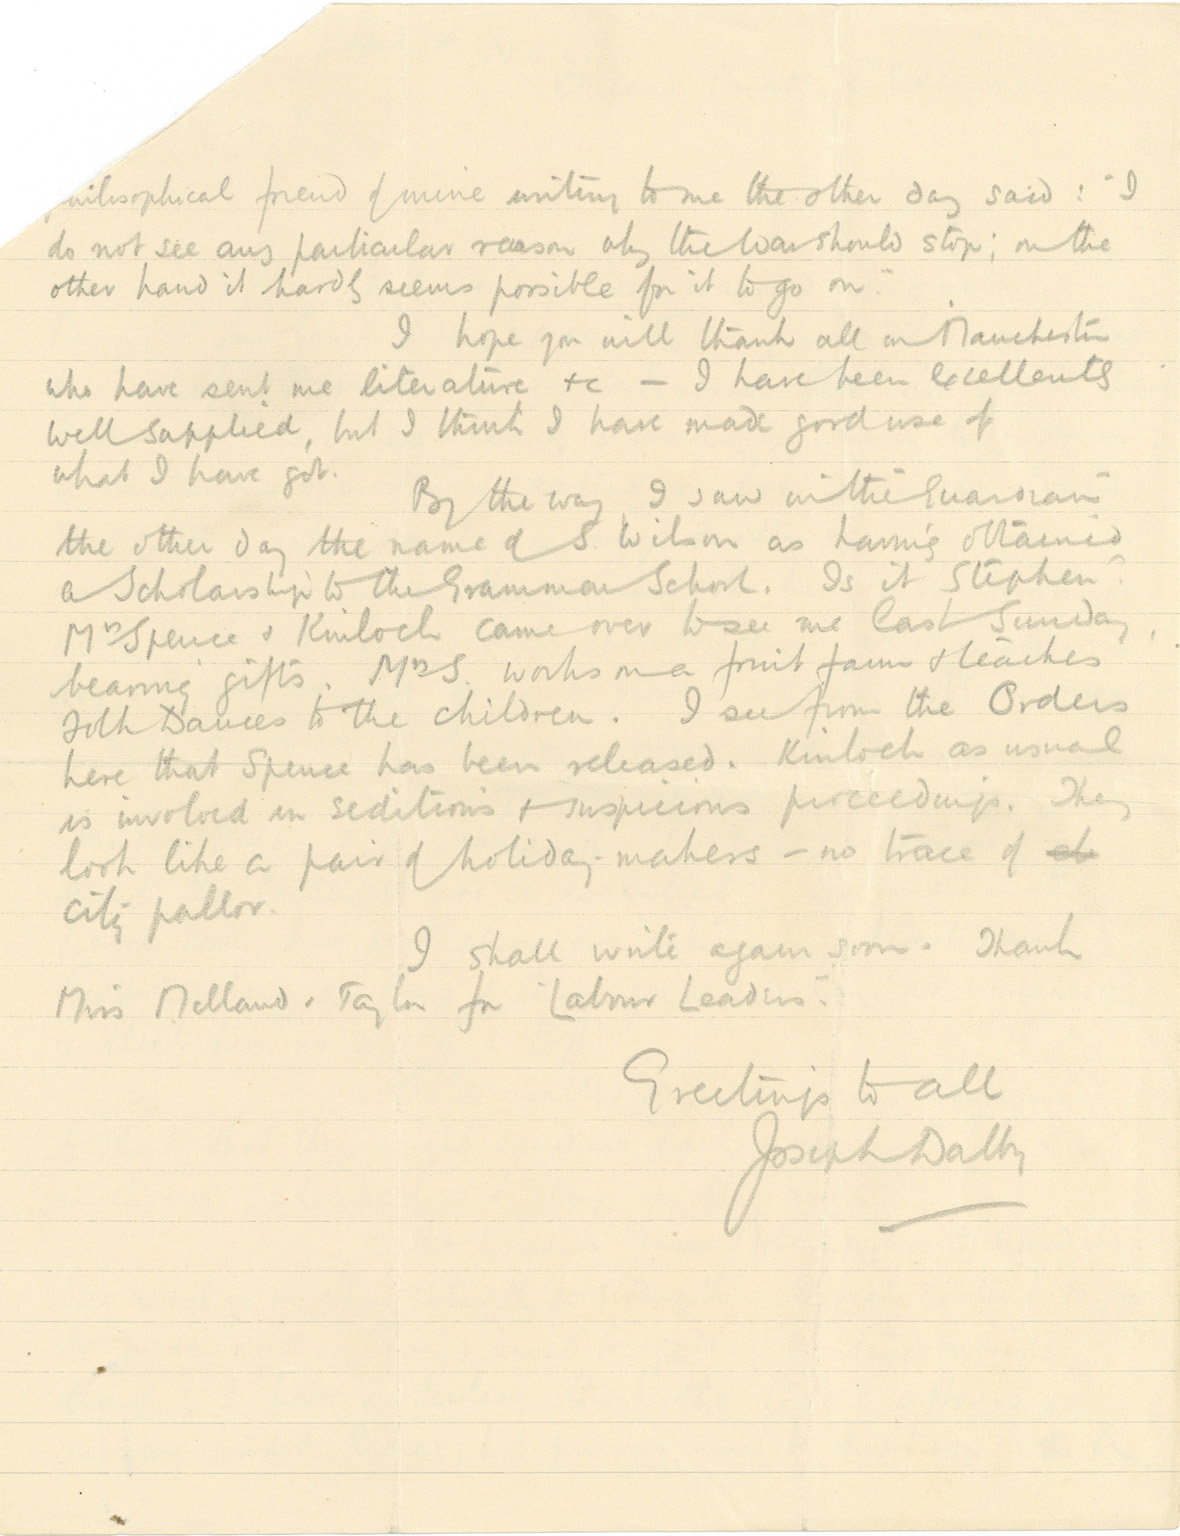 philosophical friend of mine writing to me the other day said: "I
do not see any particular reason why the War should stop; on the
other hand it hardly seems possible for it to go on".
I hope you will thank all in Manchester
who have sent me literature &c — I have been excellently
well supplied, but I think I have made good use of
what I have got.
By the way, I saw in the "Guardian"
the other day the name of S. Wilson as having obtained
a Scholarship to the Grammar School. Is it Stephen?
Mrs Spence & Kinloch came over to see me last Sunday,
bearing gifts. Mrs S. works on a fruit farm & teaches
Folk Dances to the children. I see from the Orders
here that Spence has been released. Kinloch as usual
is involved in seditious & suspicious proceedings. They
look like a pair of holiday-makers — no trace of
city pallor.
I shall write again soon. Thank
Miss Melland & Taylor for "Labour Leaders".
Greetings to all
Joseph Dalby